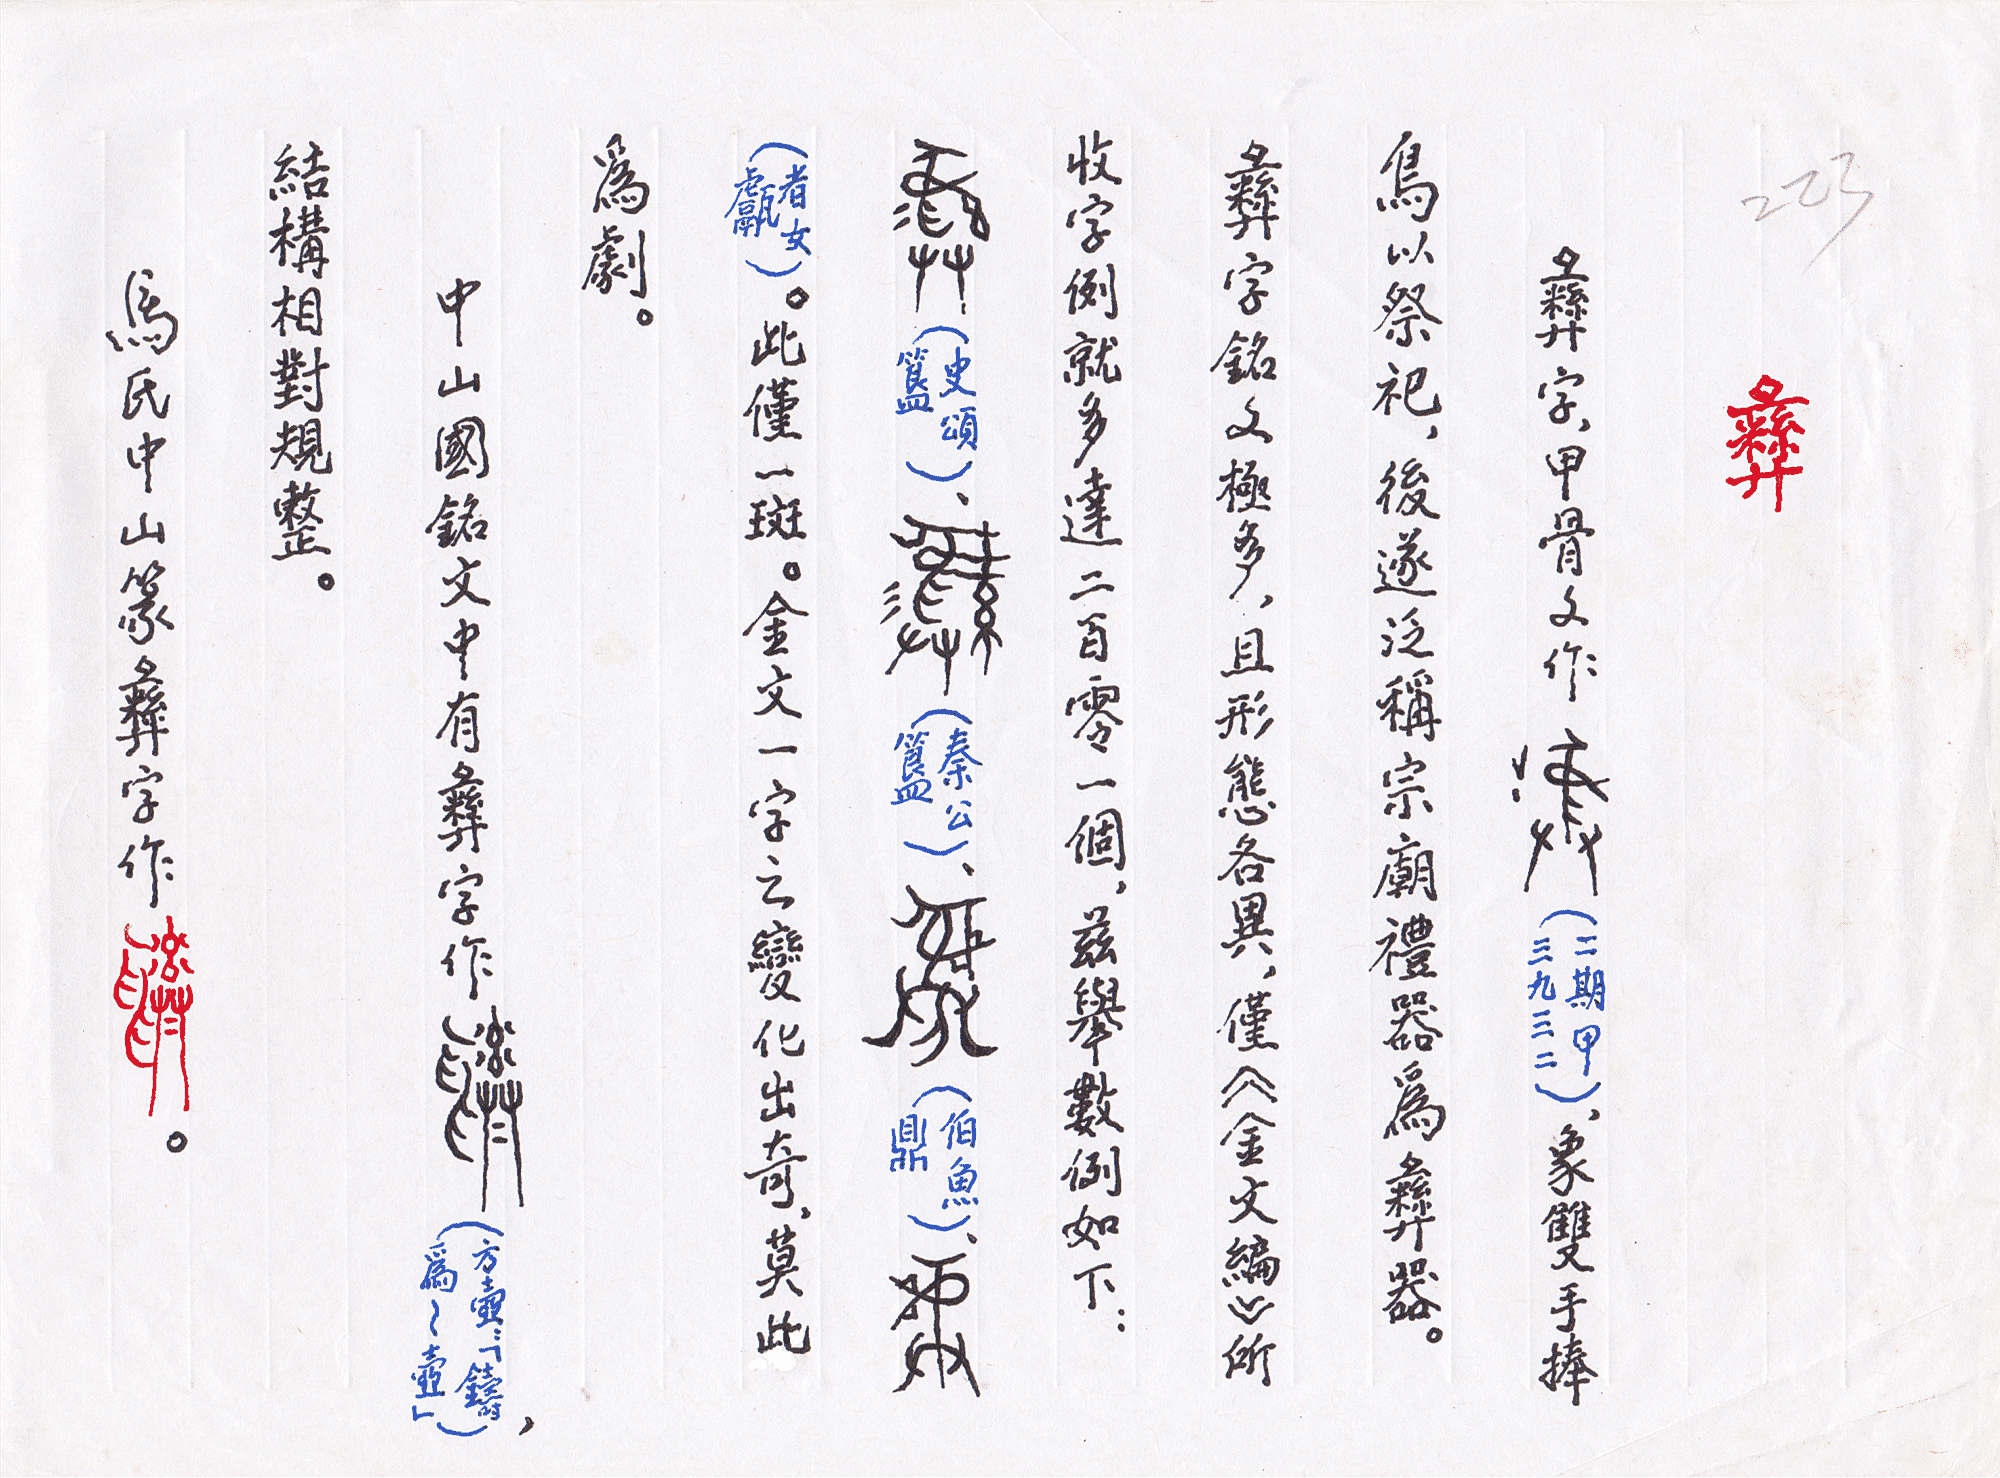 223
彝
彝字，甲骨文作（二期甲三九三二），象雙手捧
鳥以祭祀，後遂泛稱宗廟禮器爲彝器。
彝字銘文極多，且形態各異，僅《金文編》所
收字例就多達二百零一個，兹舉數例如下：
（史頌簋）、（秦公簋）、（伯魚鼎）、
（者女甗）。此僅一斑。金文一字之變化出奇，莫此
爲劇。
中山國銘文中有彝字作（方壺：「鑄爲～壺」），
結構相對規整。
馬氏中山篆彝字作。